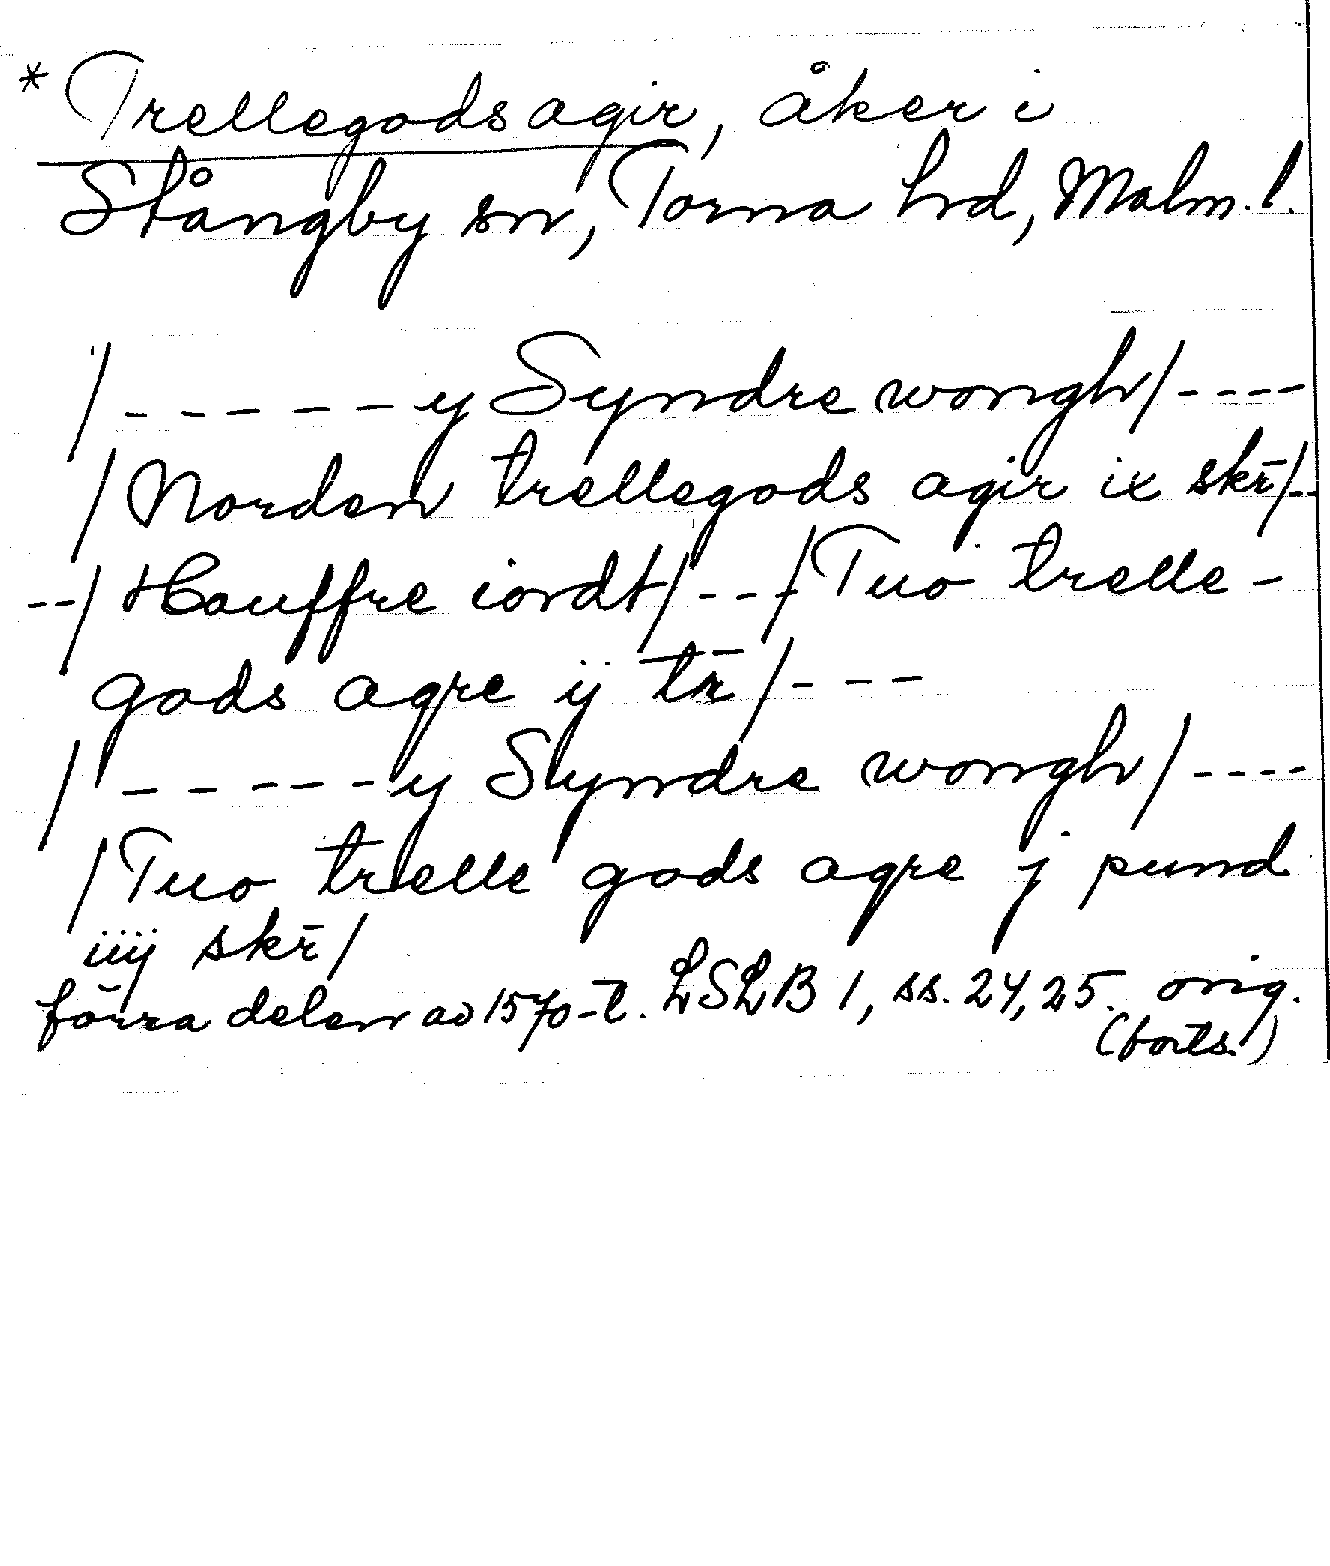 * Trellegods agir, åker i
Stångby sn, Torna hrd, Malm. l.
/ - - - - - - y Syndre wongh / - - - -
/ Norden trellegods agir ix skr̄ / - -
- - / Hauffre iordt / - - - / Tuo trelle -
gods agre ij tr̄ / - - -
/ - - - - - y Syndre wongh / - - - -
/ Tuo trelle gods agre j pund
iiij skr̄ /
förra delen av 1570-t. LSLB 1, ss. 24, 25. orig.
(forts.)